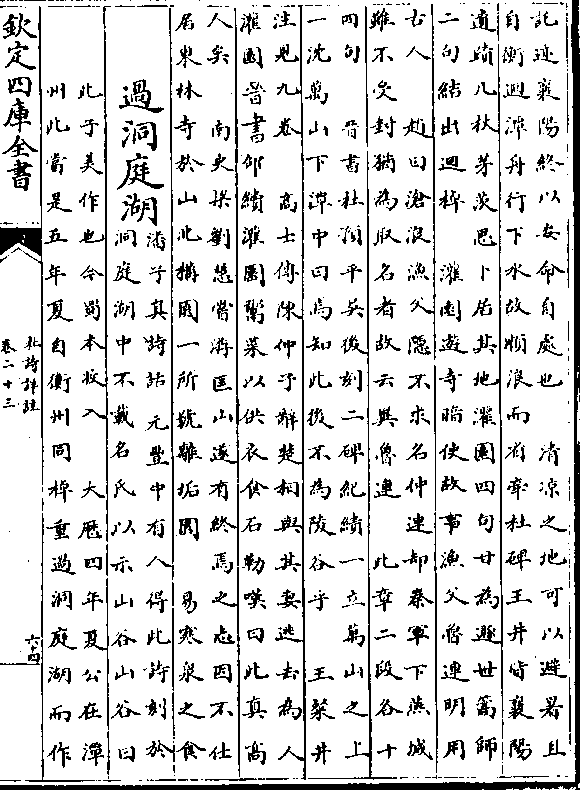 記述襄陽終以安命自處也　清涼之地可以避暑且
自衡迴潭舟行下水故順浪而有幸杜碑王井皆襄陽
遺蹟几杖茅茨思卜居其地灌園四句甘為遯世篙師
二句結出迴棹　灌園遊寺暗使故事漁父魯連明用
古人　趙曰滄浪漁父隱不求名仲連却秦軍下燕城
雖不受封猶為取名者故云異魯連　此章二段各十
四句　晉書杜預平吳後刻二碑紀績一立萬山之上
一沈萬山下潭中曰焉知此後不為陵谷乎　王粲井
注見九卷　高士傳陳仲子辭楚相與其妻逃去為人
灌園晉書郤續灌園鬻菜以供衣食石勒嘆曰此真高
人矣　南史梁劉慧嘗游匡山遂有終焉之志因不仕
居東林寺於山北構園一所號離垢園　易寒泉之食
過洞庭湖
潘子真詩話元豐中有人得此詩刻於
洞庭湖中不載名氏以示山谷山谷曰
此子美作也今蜀本收入　大曆四年夏公在潭
州此當是五年夏自衡州回棹重過洞庭湖而作
欽定四庫全書
杜詩詳註
卷二十三
六十四